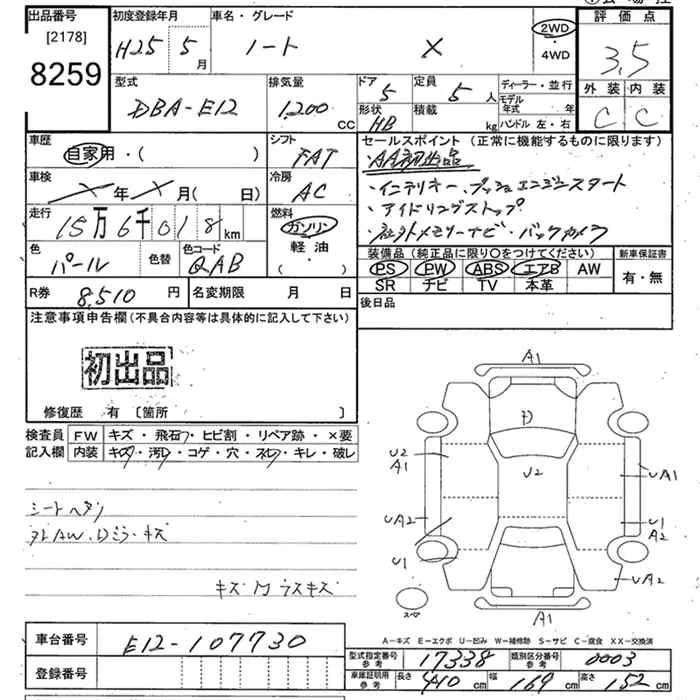 出品番号 初度登録年月 車名・グレード 評価点
[2178] H25年 5月 ノート X 2WD・4WD 3.5
8259
型式 排気量 ドア 定員 ディーラー・並行 外装 内装
DBA-E12 1,200cc 5 5人 モデル年式 年 C C
形状 HB 積載 kg ハンドル 左・右
車歴 シフト セールスポイント (正常に機能するものに限ります)
自家用・( ) FAT ・AA初出品
車検 X年X月( 日) 冷房 AC ・インテリキー、プッシュエンジンスタート
走行 燃料 ・アイドリングストップ
15万6千018km ガソリン ・社外メモリーナビ・バックカメラ
色 色替 色コード 軽油 装備品(純正品に限り○をつけてください) 新車保証書
パール QAB ・( ) PS PW ABS エアB AW 有・無
SR ナビ TV 本革
R券 8,510円 名変期限 月 日 後日品
注意事項申告欄(不具合内容等は具体的に記入して下さい)
初出品
修復歴 有 〔箇所 〕
検査員 FW キズ・飛石・ヒビ割・リペア跡・×要
記入欄 内装 キズ・汚れ・コゲ・穴・スレ・キレ・破レ
シートヘタリ
キズM ラスキズ
A1
D
U2
A1
U2
UA1
UA2
U1
A2
U1
UA2
スペ
A1
A-キズ E-エクボ U-凹み W-補修跡 S-サビ C-腐食 XX-交換済
車台番号 E12-107730
型式指定番号 参考 17338 類別区分番号 参考 0003
登録番号
車庫証明用 参考 長さ 410cm 幅 169cm 高さ 152cm